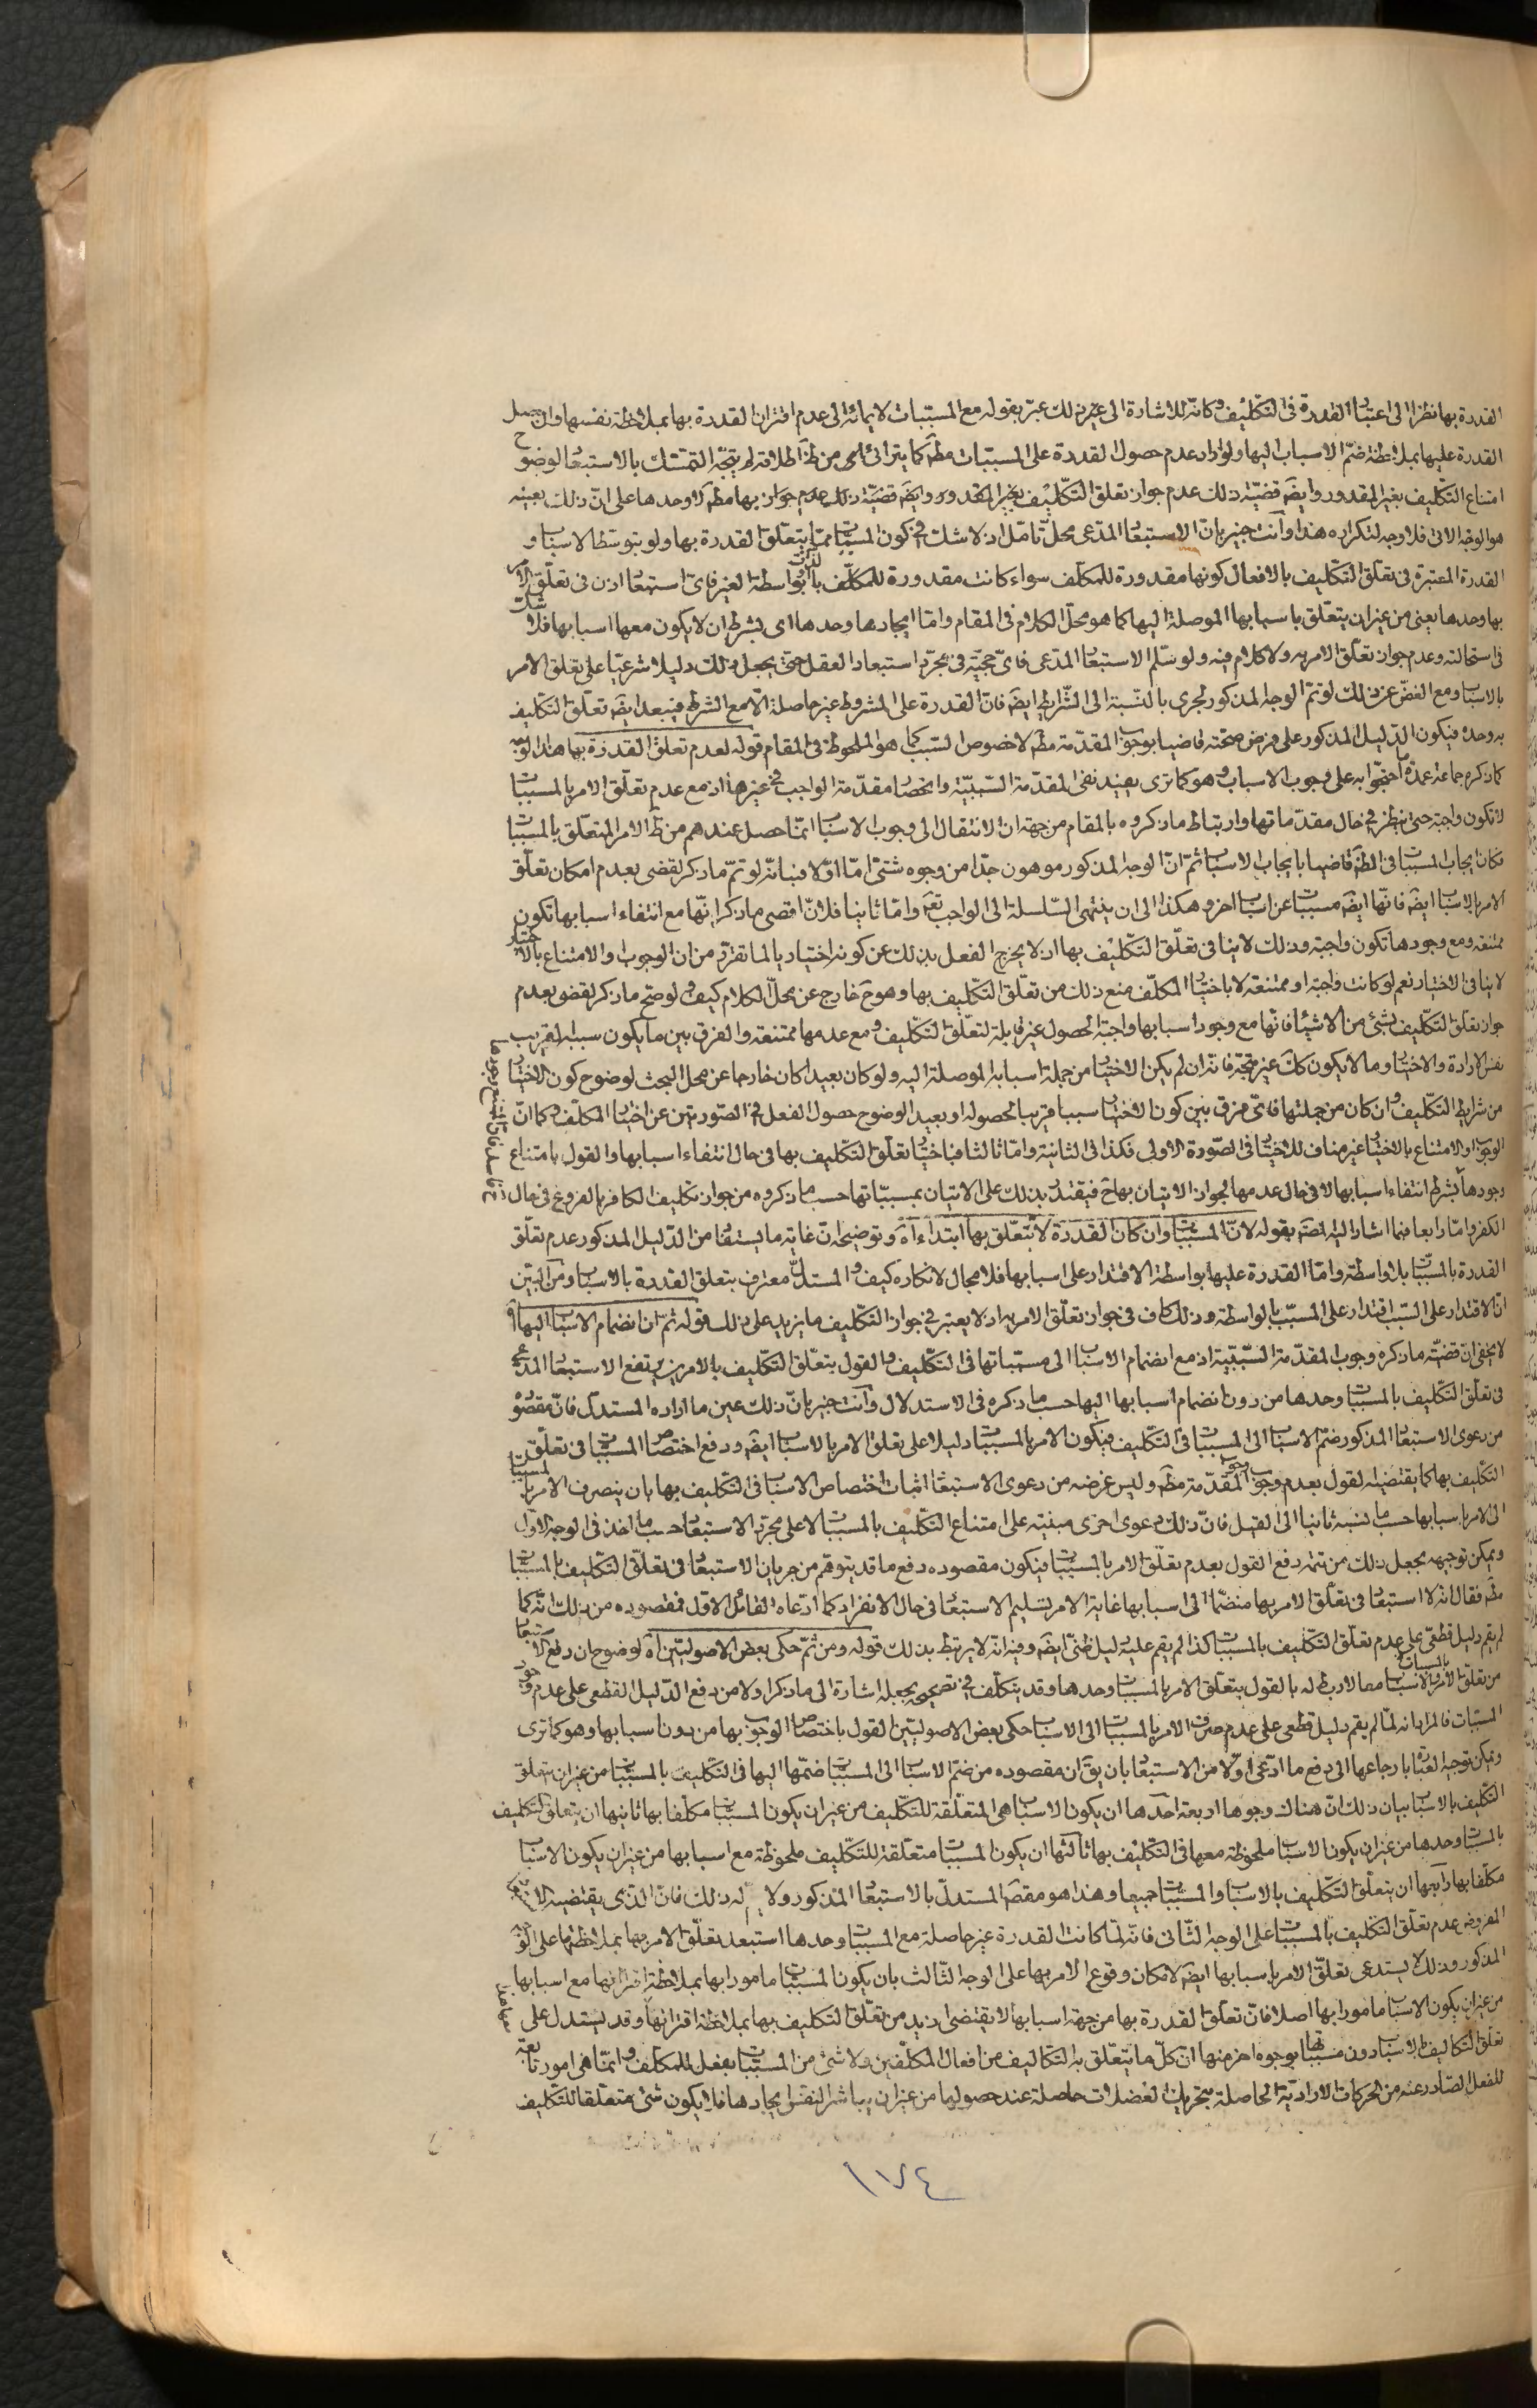 القدرة بها نظرا الى اعتبار القدرة فى التكليف وكانّه للاشارة الى غير ذلك عبّر بقوله مع المسبّبات لايمائه الى عدم اقتران القدرة بها بملاحظة نفسها وان حصل
القدرة عليها بملاحظة ضمّ الاسباب اليها ولو اراد عدم حصول القدرة على المسبّبات مطَ كما يترائى من ظَ اطلاقه لم يتجّه التمسّك بالاستبعا لوضوح
امتناع التكليف بغير المقدور وايضَ قضيّة ذلك عدم جواز تعلق التكليف بغير المقدور وايضَ قضيّة ذلك عدم جواز بها مطَ لا وحدها على انّ ذلك بعينه
هو الوجه الاتى فلا وجه لتكراره هذا وانت خبير بانّ الاستبعا المدّعى محلّ تامّل اذ لا شك فى كون المسببات ممّا يتعلّق القدرة بها ولو بتوسّط الاسبا و
القدرة المعتبرة فى تعلّق التكليف بالافعال كونها مقدورة للمكلف سواء كانت مقدورة للمكلّف بالذات او بواسطة الغير فاىّ استبعا اذن فى تعلّق الامر
بها وحدها يعنى من غير ان يتعلّق باسبابها الموصلة اليها كما هو محلّ الكلام فى المقام وامّا ايجادها وحدها اى بشرط ان لا يكون معها اسبابها فلا شك
فى استحالته وعدم جواز تعلّق الامر به ولا كلام فيه ولو سلّم الاستبعا المدّعى فاىّ حجيّة فى مجرّد استبعاد العقل حتى يجعل ذلك دليلا شرعيّا على تعلق الامر
بالاسبا ومع الغضّ عن ذلك لو تمّ الوجه المذكور لجرى بالنّسبة الى الشّرايط ايضَ فانّ القدرة على المشروط غير حاصلة الاّ مع الشرط فيبعد ايضَ تعلّق التكليف
به وحده فيكون الدّليل المذكور على فرض صحّته قاضيا بوجوب المقدّمة مطَ لا خصوص السّبب كما هو الملحوظ فى المقام قوله لعدم تعلق القدرة بها هذا الوجه
كما ذكره جماعة عمدة ما احتجّوا به على وجوب الاسباب وهو كما ترى يفيد نفى المقدّمة السّببيّة وانحصا مقدّمة الواجب فى غيرها اذ مع عدم تعلّق الامر بالمسببات
لا تكون واجبة حتى ينظر فى حال مقدّماتها وارتباط ما ذكروه بالمقام من جهة ان الانتقال الى وجوب الاسبا انمّا حصل عندهم من ظَ الامر المتعلّق بالمسببات
فكان ايجاب المسببات فى الظَ قاضيا بايجاب الاسبا ثمّ انّ الوجه المذكور موهون جدّا من وجوه شتىّ امّا اوّلا فبانّه لو تمّ ما ذكر لقضى بعدم امكان تعلّق
الامر بالاسبا ايضَ فانّها ايضَ مسببات عن اسبا اخر وهكذا الى ان ينتهى السّلسلة الى الواجب تعَ وامّا ثانيا فلانّ اقصى ما ذكر انّها مع انتفاء اسبابها تكون
ممتنعة ومع وجودها تكون واجبة وذلك لا ينافى تعلّق التكليف بها اذ لا يخرج الفعل بذلك عن كونه اختياريا لما تقرّر من ان الوجوب والامتناع بالاختيار
لا ينافى الاختيار نعم لو كانت واجبة او ممتنعة لا باختيا المكلّف منع ذلك من تعلّق التكليف بها وهو حَ خارج عن محلّ الكلام كيف ولو صحّ ما ذكر لقضى بعدم
جواز تعلّق التكليف بشئ من الاشيا فانّها مع وجود اسبابها واجبة الحصول غير قابلة لتعلّق التكليف ومع عدمها ممتنعة والفرق بين ما يكون سببه القريب
نفس الارادة والاختيا وما لا يكون كك غير متّجه فانّه ان لم يكن الاختيا من جملة اسبابه الموصلة اليه ولو كان بعيدا كان خارجا عن محل البحث لوضوح كون الاختيا
من شرايط التكليف وان كان من جملتها فاىّ فرق بين كون الاختيا سببا قريبا لحصوله او بعيد الوضوح حصول الفعل فى الصّورتين عن اختيا المكلّف وكما انّ
الوجوب او الامتناع بالاختيا غير مناف للاختيا فى الصّورة الاولى فكذا فى الثانية وامّا ثالثا فباختيا تعلّق التكليف بها فى حال انتفاء اسبابها والقول بامتناع
وجودها بشرط انتفاء اسبابها لا فى حال عدمها لجواز الاتيان بها حَ فيقتدر بذلك على الاتيان بمسبّباتها حسب ما ذكروه من جواز تكليف الكافر بالفروع فى حال
الكفر وامّا رابعا فبما اشار اليه المصَ بقوله لانّ المسببات وان كان القدرة لا تتعلّق بها ابتداء اه وتوضيحه انّ غاية ما يستفا من الدّليل المذكور عدم تعلّق
القدرة بالمسبّبات بلا واسطة وامّا القدرة عليها بواسطة الاقتدار على اسبابها فلا مجال لانكاره كيف والمستدلّ معترف بتعلق القدرة بالاسبا ومن البيّن
انّ الاقتدار على السّبب اقتدار على المسبّب بالواسطة وذلك كاف فى جواز تعلّق الامر به اذ لا يعتبر فى جواز التكليف ما يزيد على ذلك قوله ثمّ انّ انضمام الاسبا اليها اه
لا يخفى انّ قضيّة ما ذكره وجوب المقدّمة السّببيّة اذ مع انضمام الاسبا الى مسبّباتها فى التكليف والقول بتعلّق التكليف بالامرين يرتفع الاستبعا المدّعى
فى تعلّق التكليف بالمسببات وحدها من دون انضمام اسبابها اليها حسب ما ذكره فى الاستدلال وانت خبير بانّ ذلك عين ما اراده المستدلّ فانّ مقصوده
من دعوى الاستبعا المذكور ضمّ الاسبا الى المسببات فى التكليف فيكون الامر بالمسببات دليلا على تعلق الامر بالاسبا ايضَ ودفع اختصاص المسببات فى تعلّق
التكليف بها كما يقتضيه القول بعدم وجوب المقدّمة مطَ وليس غرضه من دعوى الاستبعا اثبات اختصاص الاسبا فى التكليف بها بان ينصرف الامر بالمسببات
الى الامر باسبابها حسب ما نسبه ثانيا الى القيل فانّ ذلك دعوى اخرى مبنيّة على امتناع التكليف بالمسببات لا على مجرّد الاستبعا حسب ما اخذ فى الوجه الاوّل
ويمكن توجيهه بجعل ذلك من تتمّة دفع القول بعدم تعلّق الامر بالمسببات فيكون مقصوده دفع ما قد يتوهّم من جريان الاستبعا فى تعلّق التكليف بالمسببات
مطَ فقال انّه لا استبعا فى تعلّق الامر بها منضمّا الى اسبابها غاية الامر تسليم الاستبعا فى حال الانفراد كما ادّعاه القائل الاوّل فمقصوده من ذلك انّه كما
لم يقم دليل قطعىّ على عدم تعلّق التكليف بالمسببات كذا لم يقم عليه دليل ظنّى ايضَ وفيه انّه لا يرتبط بذلك قوله ومن ثمّ حكى بعض الاصوليّين اه لوضوح ان رفع الاستبعا
من تعلّق الامر بالمسببات والاسبا معا لا ربط له بالقول بتعلّق الامر بالمسببات وحدها وقد يتكلّف فى تصحيحه بجعله اشارة الى ما ذكر اولا من دفع الدّليل القطعى على عدم وجوب
المسببات فالمراد انه لمّا لم يقم دليل قطعى على عدم صرف الامر بالمسببات الى الاسبا حكى بعض الاصوليّين القول باختصاص الوجوب بها من دون اسبابها وهو كما ترى
ويمكن توجيه العبارة بارجاعها الى دفع ما ادّعى اوّلا من الاستبعا بان يقَ ان مقصوده من ضمّ الاسبا الى المسببات ضمّها اليها فى التكليف بالمسببات من غير ان يتعلّق
التكليف بالاسبا بيان ذلك انّ هناك وجوها اربعة احدها ان يكون الاسبا هى المتعلّقة للتكليف من غير ان يكون المسببات مكلّفا بها ثانيها ان يتعلق التكليف
بالمسببات وحدها من غير ان يكون الاسبا ملحوظة معها فى التكليف بها ثالثها ان يكون المسببات متعلقة للتكليف ملحوظة مع اسبابها من غير ان يكون الاسبا
مكلفا بها رابعها ان يتعلّق التكليف بالاسبا والمسببات جميعا وهذا هو مقصَ المستدلّ بالاستبعا المذكور ولا له ذلك فانّ الذى يقتضيه
عدم تعلّق التكليف بالمسببات على الوجه الثّانى فانّه لمّا كانت القدرة غير حاصلة مع المسببات وحدها استبعد تعلّق الامر بها بملاحظتها على الوجه
المذكور وذلك لا يستدعى تعلّق الامر باسبابها ايضَ لامكان وقوع الامر بها على الوجه الثّالث بان يكون المسببات مامورا بها بملاحظة اقترانها مع اسبابها
من غير ان يكون الاسبا مامورا بها اصلا فانّ تعلّق القدرة بها من جهة اسبابها لا يقتضى ازيد من تعلّق التكليف بها بملاحظة اقترانها وقد يستدل على
تعلّق التكاليف بالاسبا دون مسبباتها بوجوه اخر منها انّ كلّ ما يتعلّق به التكاليف من افعال المكلّفين ولا شئ من المسببات بفعل للمكلّف وانمّا هى امور تابعة
للفعل الصّادر عنه من الحركات الاراديّة الحاصلة بتحريك العضلات حاصلة عند حصولها من غير ان يباشر النفس ايجادها فلا يكون شئ متعلقا للتكليف
١٧٤